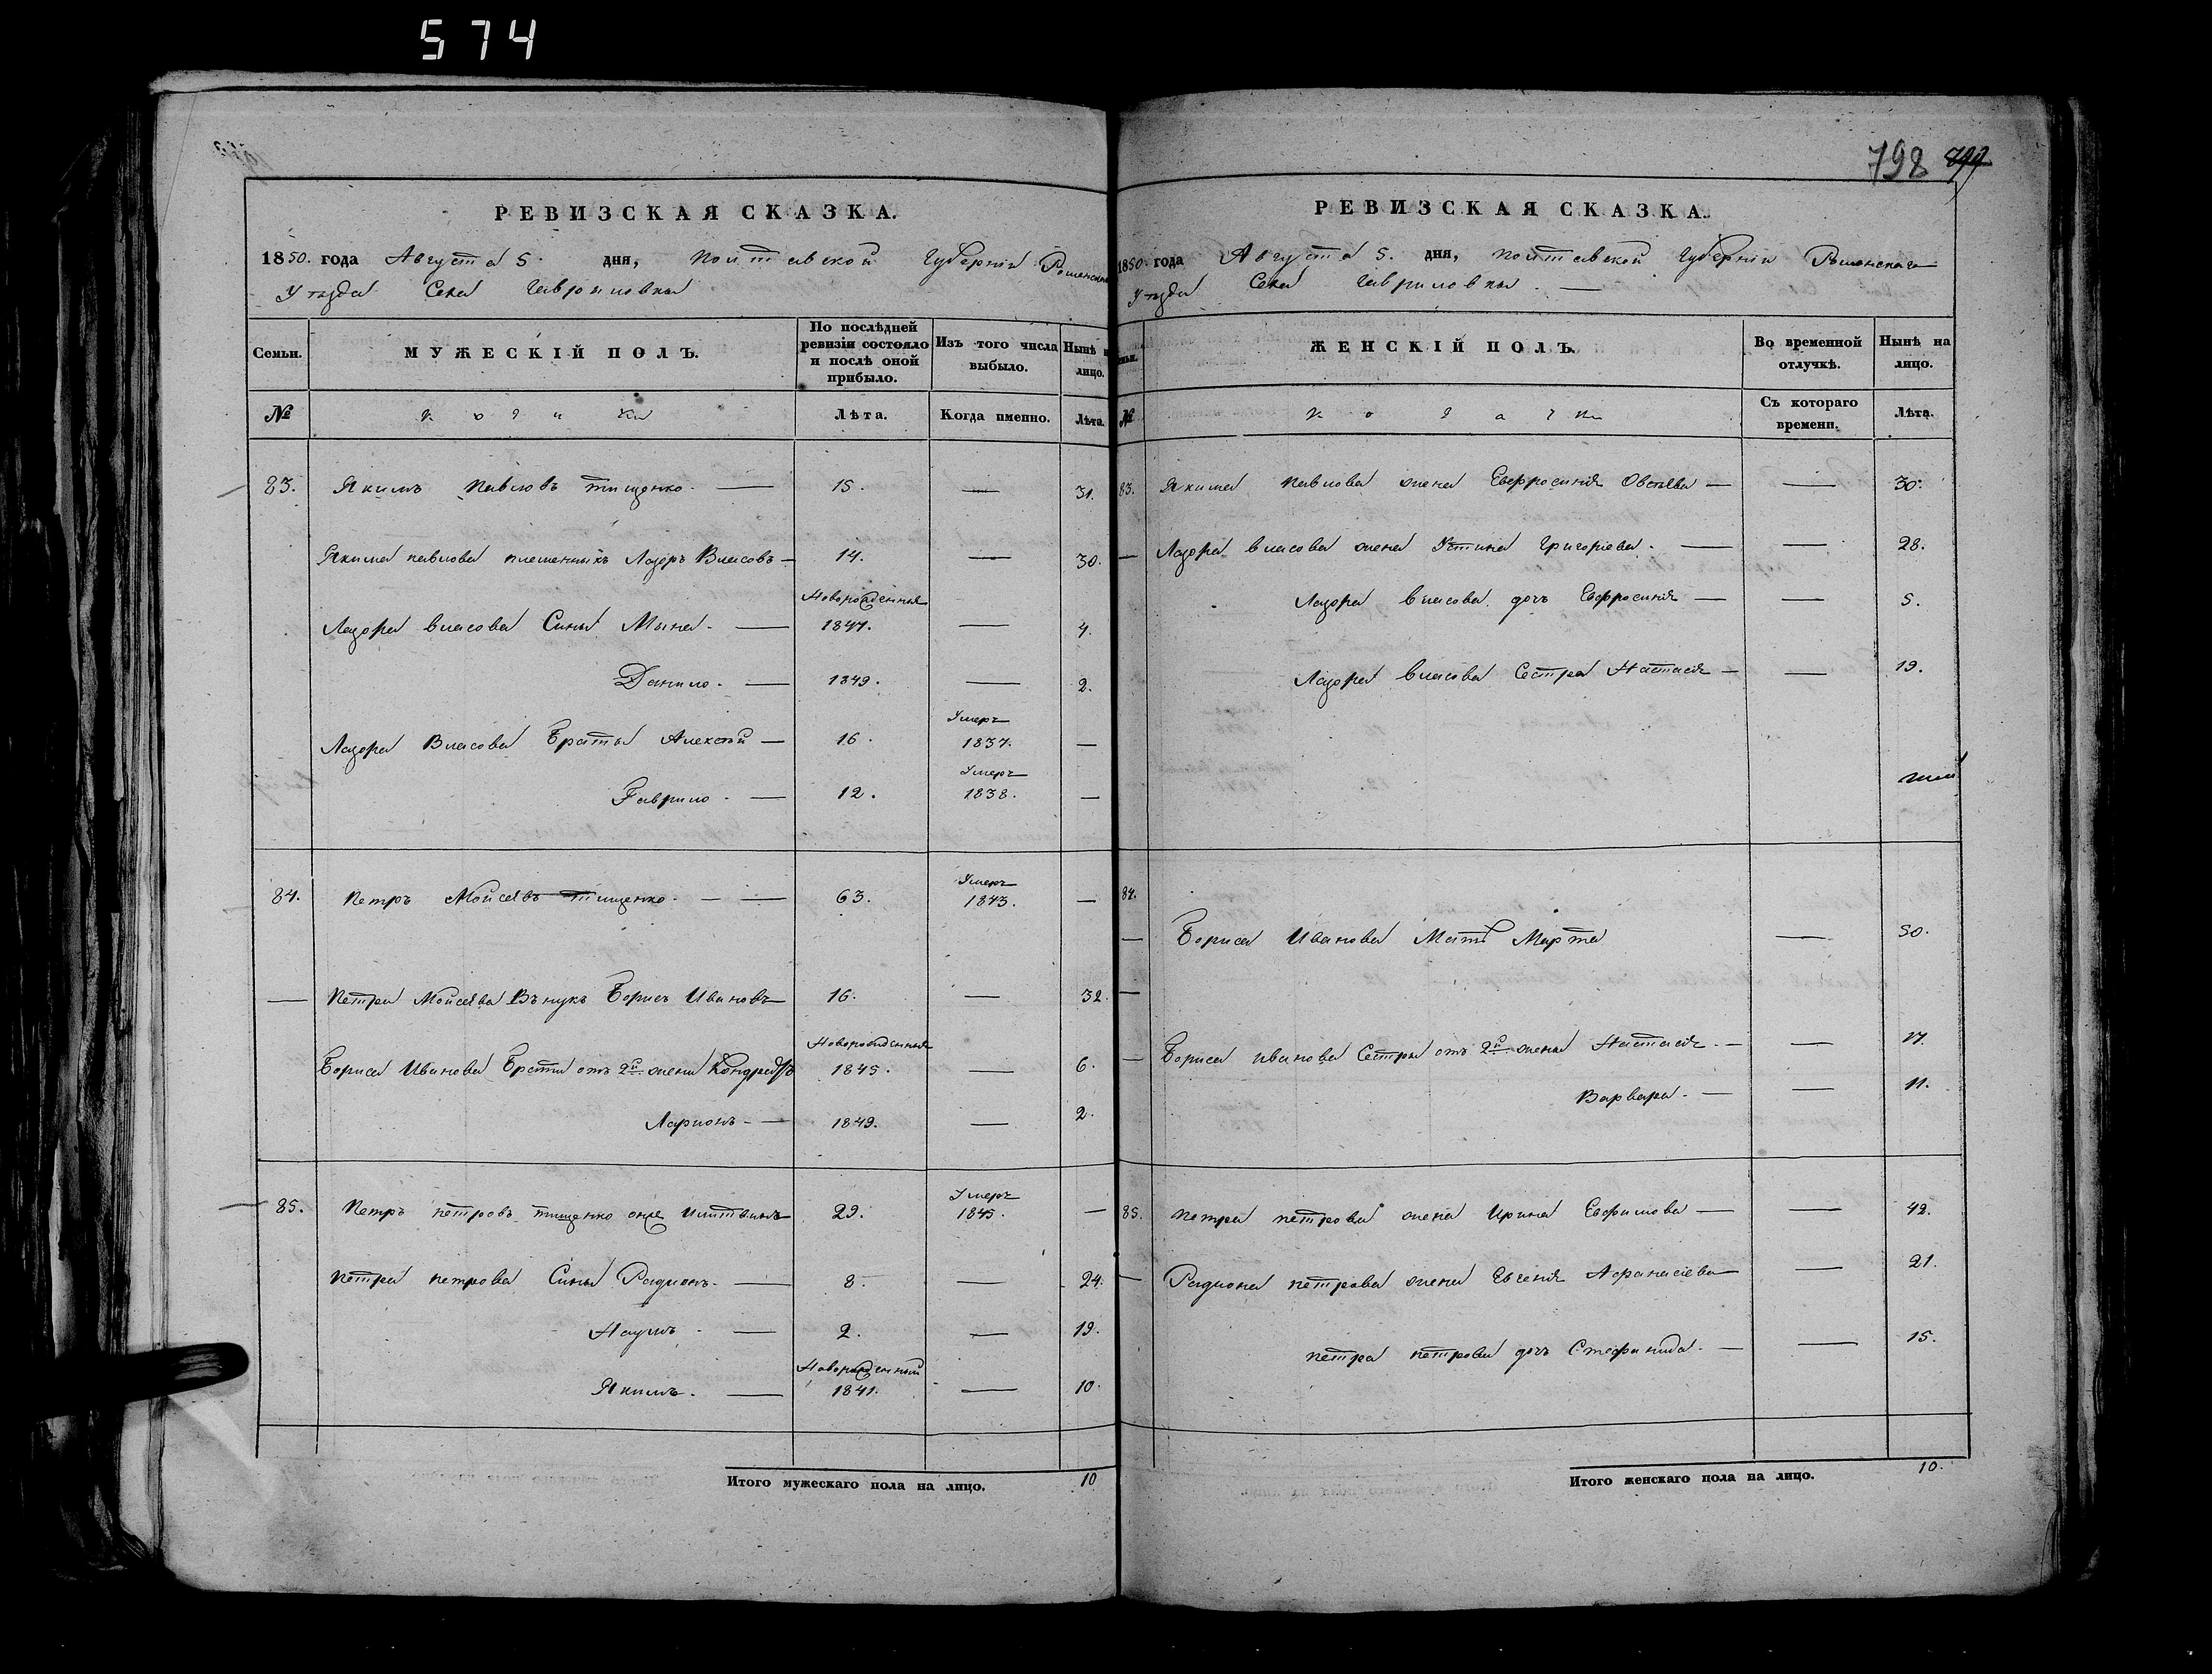 574
798 799
РЕВИЗСКАЯ СКАЗКА.
1850. года Августа 5. дня, Полтавской Губерніи Роменскаго
Уѣзда Села Гавриловки
Семьи. МУЖЕСКІЙ ПОЛЪ. По послѣдней ревизіи состояло и послѣ оной прибыло. Изъ того числа выбыло. Нынѣ на лицо.
№ Козачки Лѣта. Когда именно. Лѣта.
83. Якимъ Павловъ Тищенко. — 15. — 31.
Якима Павлова племенникъ Лазоръ Власовъ — 14. — 30.
Новорожденныя
Лазора Власова Сины Мына. — 1847. — 4.
Данило. — 1849. — 2.
Умеръ
Лазора Власова Браты Алексѣй — 16. 1837. —
Умеръ
Гаврило. — 12. 1838. —
Умеръ
84. Петръ Мойсеѣвъ Тищенко. — — 63. 1843. —
— Петра Мойсеѣва Внукъ Борисъ Ивановъ — 16. — 32.
Новорожденныя
Бориса Иванова Браты отъ 2й жены Кондратъ 1845. — 6.
Ларионъ — 1849. — 2.
Умеръ
85. Петръ Петровъ Тищенко онже 29. 1845. —
Петра Петрова Сины Радионъ. — 8. — 24.
Наумъ. — 2. — 19.
Новорожденный
Якимъ. — 1841. — 10.
Итого мужескаго пола на лицо. 10
РЕВИЗСКАЯ СКАЗКА.
1850. года Августа 5. дня, Полтавской Губерніи Роменскаго
Уѣзда Села Гавриловки. —
ЖЕНСКІЙ ПОЛЪ. Во временной отлучкѣ. Нынѣ на лицо.
№ Козачки Съ котораго времени. Лѣта.
83. Якима Павлова жена Евфросинія — — 30.
— Лазора Власова жена Устина Григорѣева. — — 28.
Лазора Власова дочь Евфросинія — — 5.
Лазора Власова Сестра Настасія — — 19.
84.
— Бориса Иванова Мать Марта — 50.
—
— Бориса Иванова Сестры отъ 2й жены Настасія. — — 17.
Варвара. — — 11.
85. Петра Петрова жена Ирина Евфимова — — 42.
— Радиона Петрова жена Евгенія Афанасіева — — 21.
Петра Петрова дочь Стефанида. — — 15.
Итого женскаго пола на лицо. 10.